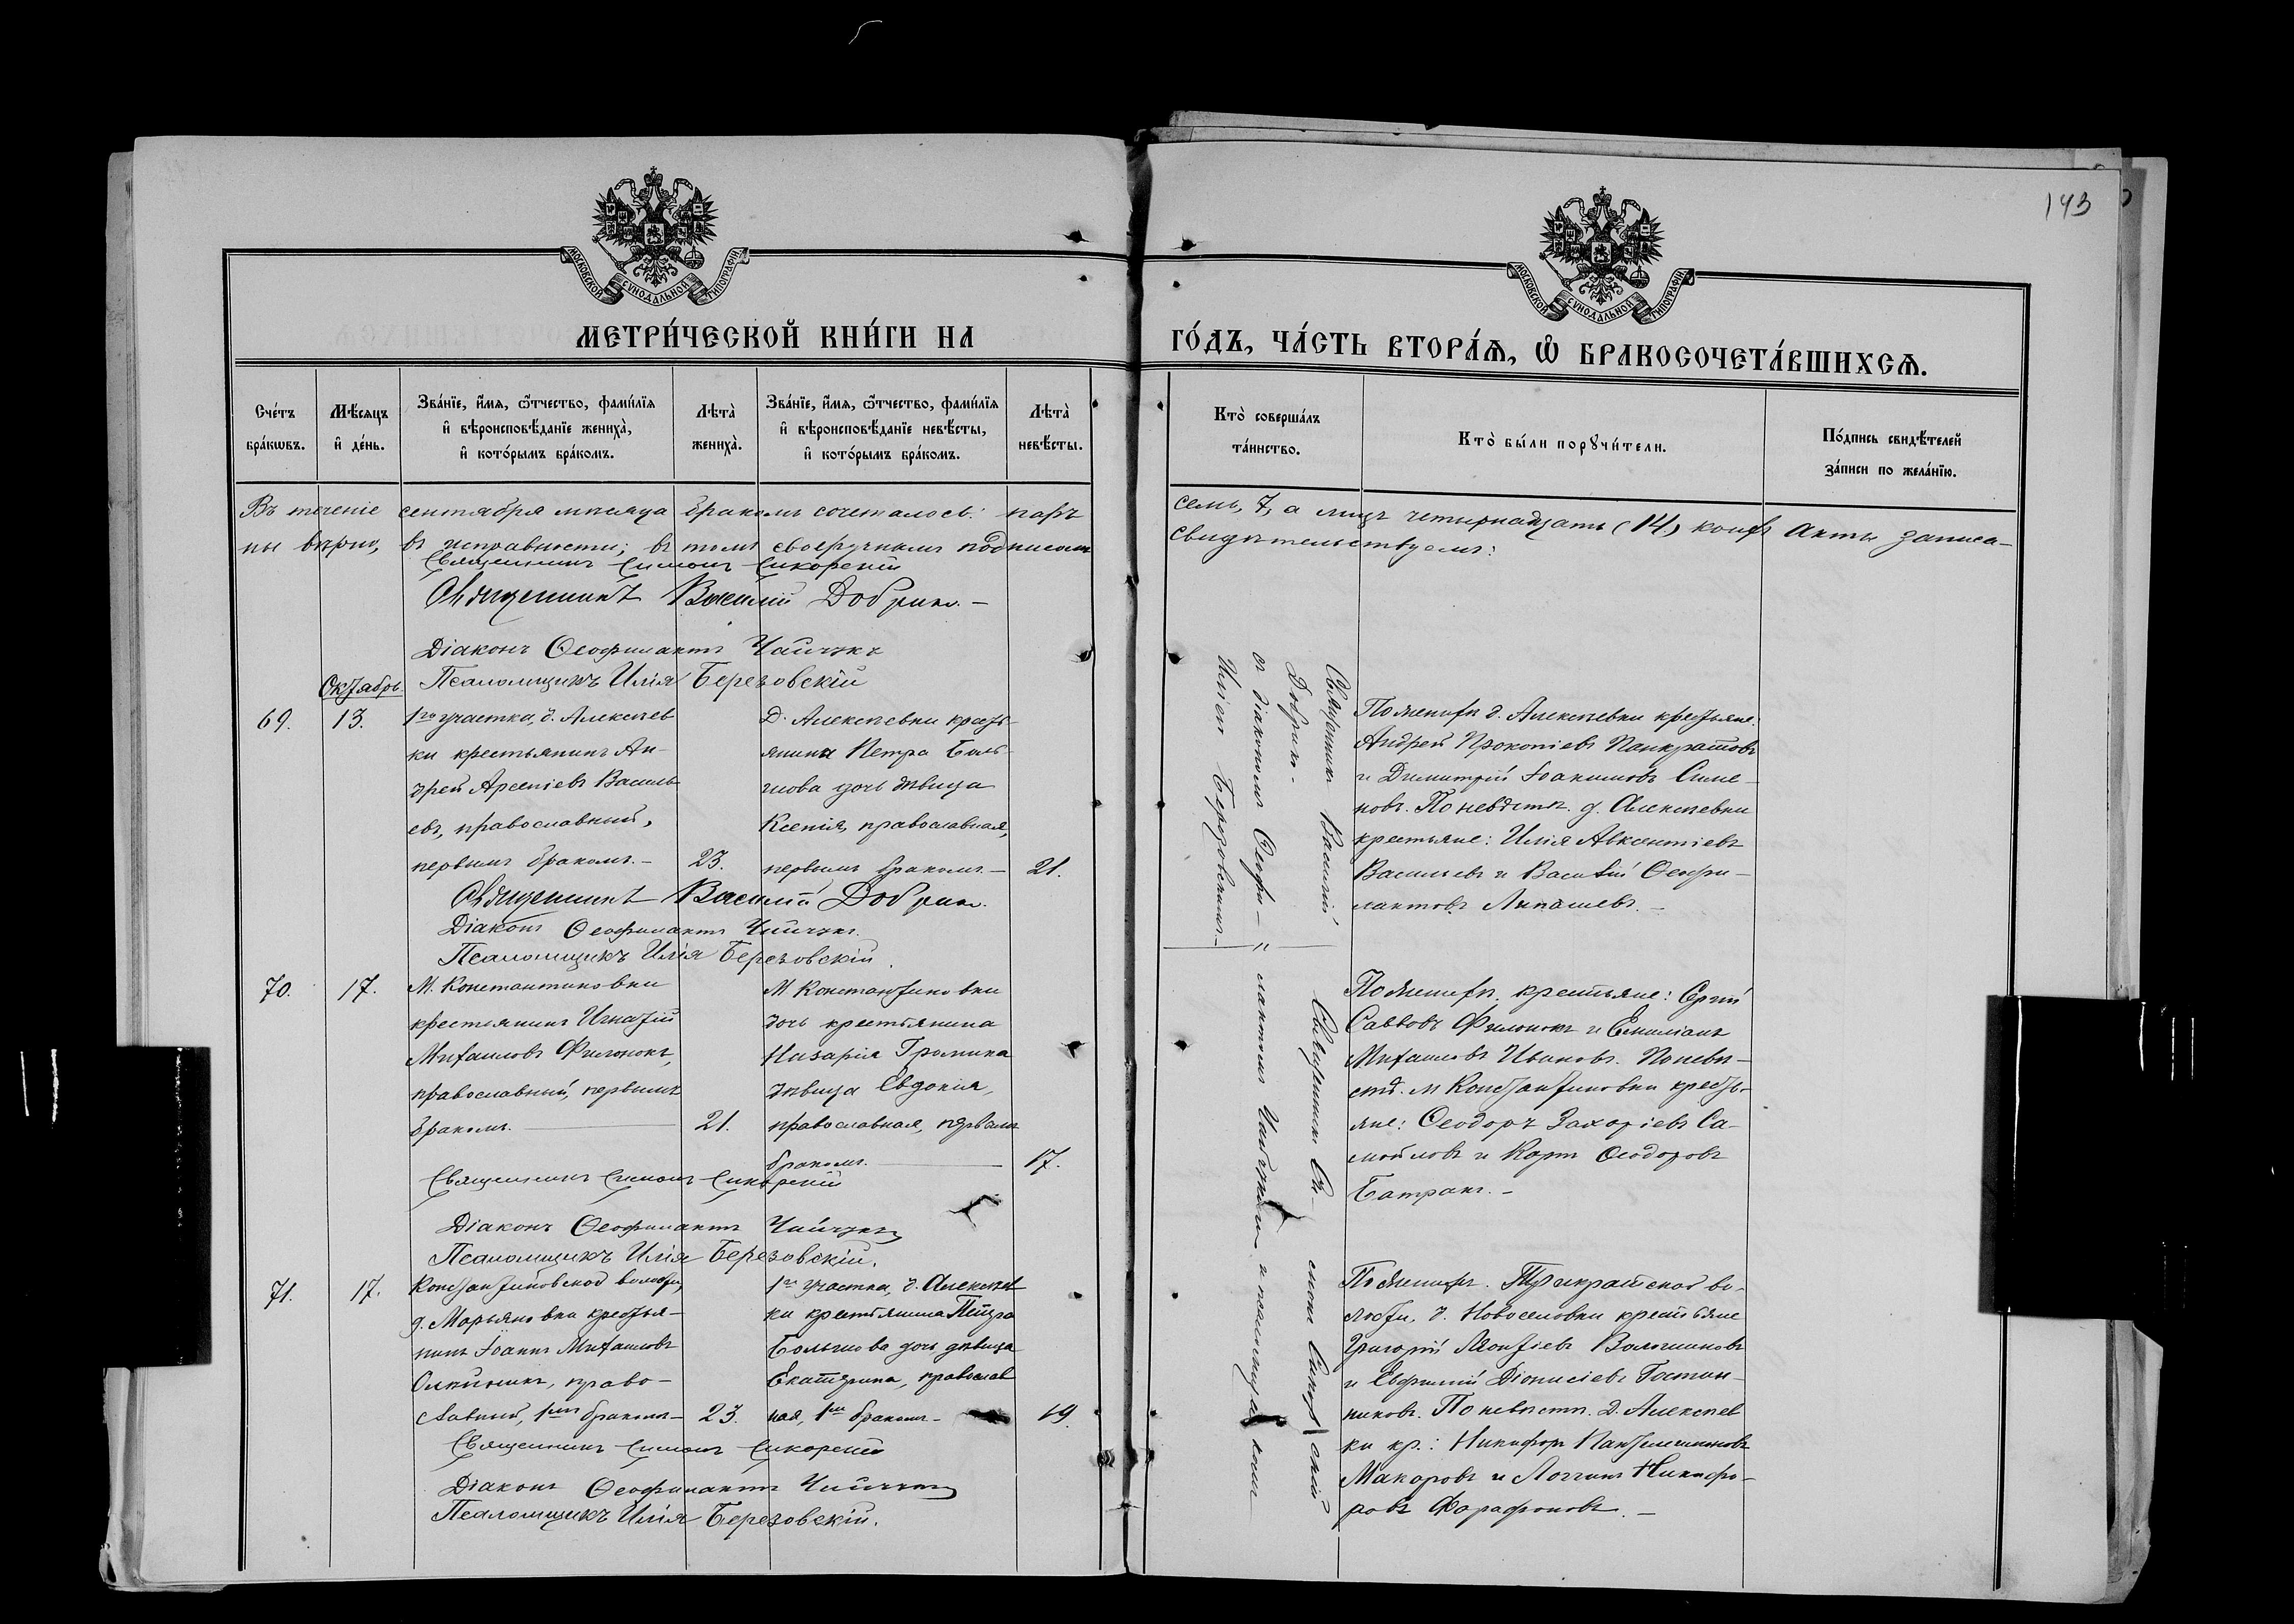 143
МОСКОВСКОЙ СУНОДАЛЬНОЙ ТИПОГРАФІИ
МОСКОВСКОЙ СУНОДАЛЬНОЙ ТИПОГРАФІИ
МЕТРИ́ЧЕСКОЙ КНИ́ГИ НА
ГО́ДЪ, ЧА́СТЬ ВТОРА́Ѧ, Ѽ БРАКОСОЧЕТА́ВШИХСѦ.
Сче́тъ
бра́кωвъ.
Мѣ́сяцъ
и҆ де́нь.
Зва́нїе, и҆́мя, ѻ҆́тчество, фами́лїя
и҆ вѣроисповѣ́данїе жениха̀,
и҆ кото́рымъ бра́комъ.
Лѣта̀
жениха̀.
Зва́нїе, и҆́мя, ѻ҆́тчество, фами́лїя
и҆ вѣроисповѣ́данїе невѣ́сты,
и҆ кото́рымъ бра́комъ.
Лѣта̀
невѣ́сты.
Кто̀ соверша́лъ
та́инство.
Кто̀ бы́ли порꙋчи́тели.
По́дпись свидѣ́телей
за́писи по жела́нїю.
Въ теченіе сентября мѣсяца бракомъ сочеталось: паръ
семь, 7, а лицъ четырнадцать (14) коихъ акты записа-
ны вѣрно, въ исправности; въ томъ своеручнымъ подписомъ
свидѣтельствуемъ:
Священникъ Симонъ Сикорскій
Священникъ Василій Добрин. –
Діаконъ Ѳеофилактъ Чайчукъ
Псаломщикъ Илія Березовскій
Октябрь
69.
13.
1го участка, д. Алексѣев
ки крестьянинъ Ан-
дрей Арсеніевъ Василь
евъ, православный,
первымъ бракомъ. –
23.
Д. Алексѣевки кресть-
янина Петра Боль-
шова дочь дѣвица
Ксенія, православная,
первымъ бракомъ. –
21.
Священникъ Василій
Добрин. -
съ діакономъ Ѳеофи-
Иліею Березовскимъ. –
По женихѣ д. Алексѣевки крестьяне:
Андрей Прокопіевъ Панкратовъ
и Димитрій Іоакимовъ Симе-
новъ. По невѣстѣ д. Алексѣевки
крестьяне: Илія Авксентіевъ
Васильевъ и Василій Ѳеофи-
лактовъ Липашевъ. –
Священникъ Василій Добрин.
Діаконъ Ѳеофилактъ Чайчукъ.
Псаломщикъ Илія Березовскій.
70.
17.
М. Константиновки
крестьянинъ Игнатій
Михаиловъ Филонокъ,
православный, первымъ
бракомъ.
21.
М Константиновки
дочь крестьянина
Назарія Громика
дѣвица Евдокія,
православная, первымъ
бракомъ.
17.
Священникъ Си-
монъ Сикорскій
лактомъ Чайчукомъ и псаломщикомъ
По женихѣ, крестьяне: Сергій
Саввовъ Филонокъ и Емиліанъ
Михаиловъ Ивановъ. По невѣ-
стѣ. м Константиновки кресть-
яне: Ѳеодоръ Захаріевъ Са-
мойловъ и Карпъ Ѳеодоровъ
Батракъ. –
Священникъ Симонъ Сикорскій
Діаконъ Ѳеофилактъ Чайчукъ
Псаломщикъ Илія Березовскій.
71.
17.
Константиновской волости,
д. Марьяновки крестья-
нинъ Іоаннъ Михаиловъ
Олейникъ, право-
славный, 1мъ бракомъ –
23.
1го участка, д. Алексѣев
ки крестьянина Петра
Большова дочь дѣвица
Екатерина, православ
ная, 1мъ бракомъ –
19.
По женихѣ. Трикратской во-
лости, д. Новоселовки крестьяне
Григорій Леонтіевъ Волошиновъ
и Евфимій Діонисіевъ Гостин-
никовъ. По невѣстѣ. д. Алексѣев
ки кр.: Никифоръ Пантелеимоновъ
Макаровъ и Логгинъ Никифо-
ровъ Фарафоновъ. –
Священникъ Симонъ Сикорскій
Діаконъ Ѳеофилактъ Чайчукъ
Псаломщикъ Илія Березовскій.